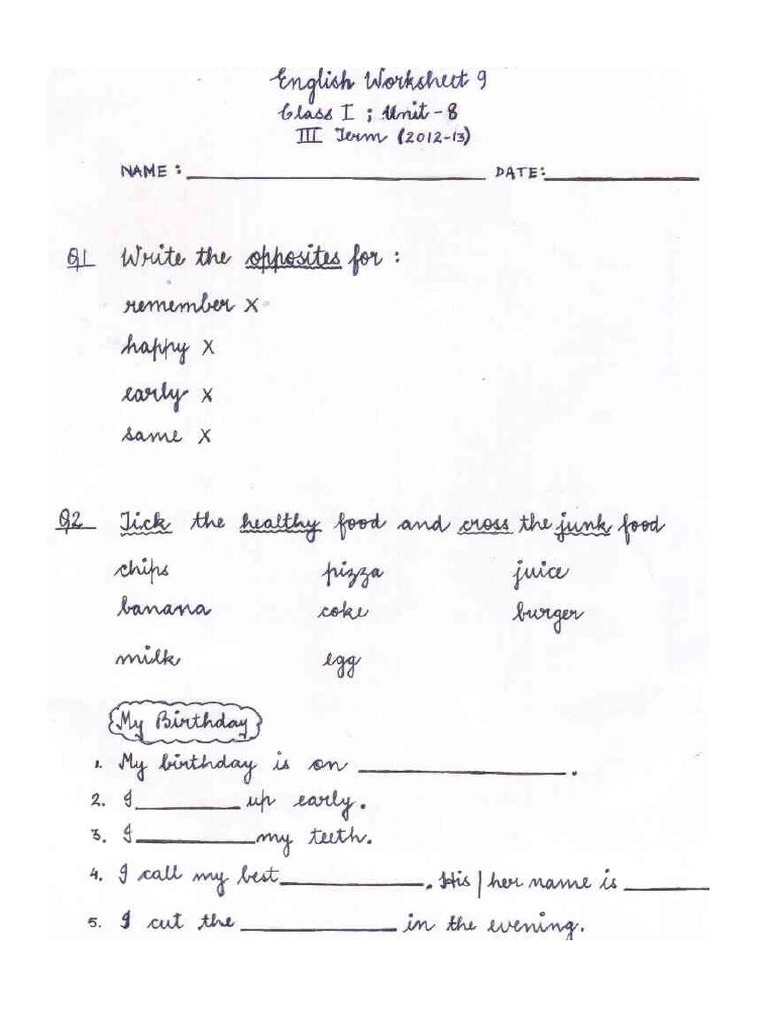 English Worksheet 9
Class I ; Unit - 8
III Term (2012-13)
NAME : ____________ DATE: ____________
Q1 Write the opposites for :
remember x
happy x
early x
same x
Q2 Tick the healthy food and cross the junk food
chips pizza juice
banana coke burger
milk egg
My Birthday
1. My birthday is on ____________.
2. I ____________ up early.
3. I ____________ my teeth.
4. I call my best ____________. His / her name is ____________
5. I cut the ____________ in the evening.